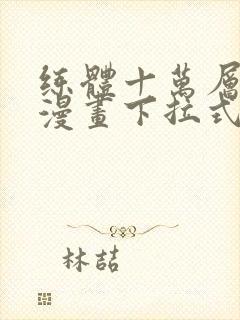 练體十萬層
漫畫下拉式
林喆